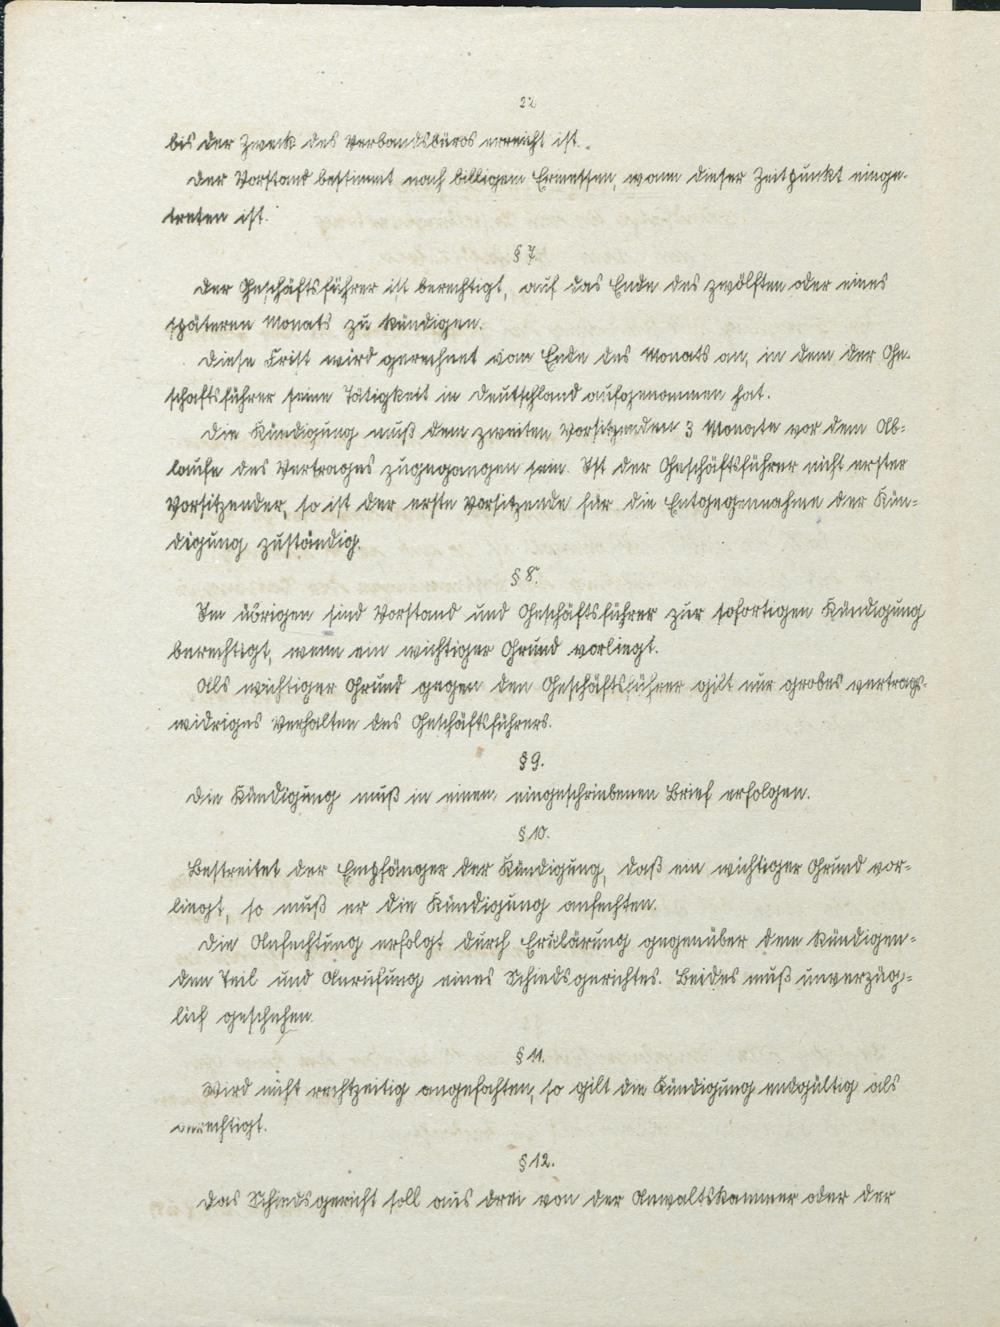 22
bis der Zweck des Verbandsbüros erreicht ist.
Der Vorstand bestimmt nach billigem Ermessen, wann dieser Zeitpunkt einge-
treten ist.
§ 7.
Der Geschäftsführer ist berechtigt, auf das Ende des zwölften oder eines
späteren Monats zu kündigen.
Diese Frist wird gerechnet vom Ende des Monats an, in dem der Ge-
schaftsführer seine Tätigkeit in Deutschland aufgenommen hat.
Die Kündigung muß dem zweiten Vorsitzenden 3 Monate vor dem Ab-
laufe des Vertrages zugegangen sein. Ist der Geschäftsführer nicht erster
Vorsitzender, so ist der erste Vorsitzende für die Entgegennahme der Kün-
digung zuständig.
§ 8.
Im übrigen sind Vorstand und Geschäftsführer zur sofortigen Kündigung
berechtigt, wenn ein wichtiger Grund vorliegt.
Als wichtiger Grund gegen den Geschäftsführer gilt nur grobes vertrags-
widriges Verhalten des Geschäftsführers.
§ 9.
Die Kündigung muß in einem eingeschriebenen Brief erfolgen.
§ 10.
Bestreitet der Empfänger der Kündigung, daß ein wichtiger Grund vor-
liegt, so muß er die Kündigung anfechten.
Die Anfechtung erfolgt durch Erklärung gegenüber dem kündigen-
den Teil und Anrufung eines Schiedsgerichtes. Beides muß unverzüg-
lich geschehen.
§ 11.
Wird nicht rechtzeitig angefochten, so gilt die Kündigung endgültig als
berechtigt.
§ 12.
Das Schiedsgericht soll aus drei von der Anwaltskammer oder der